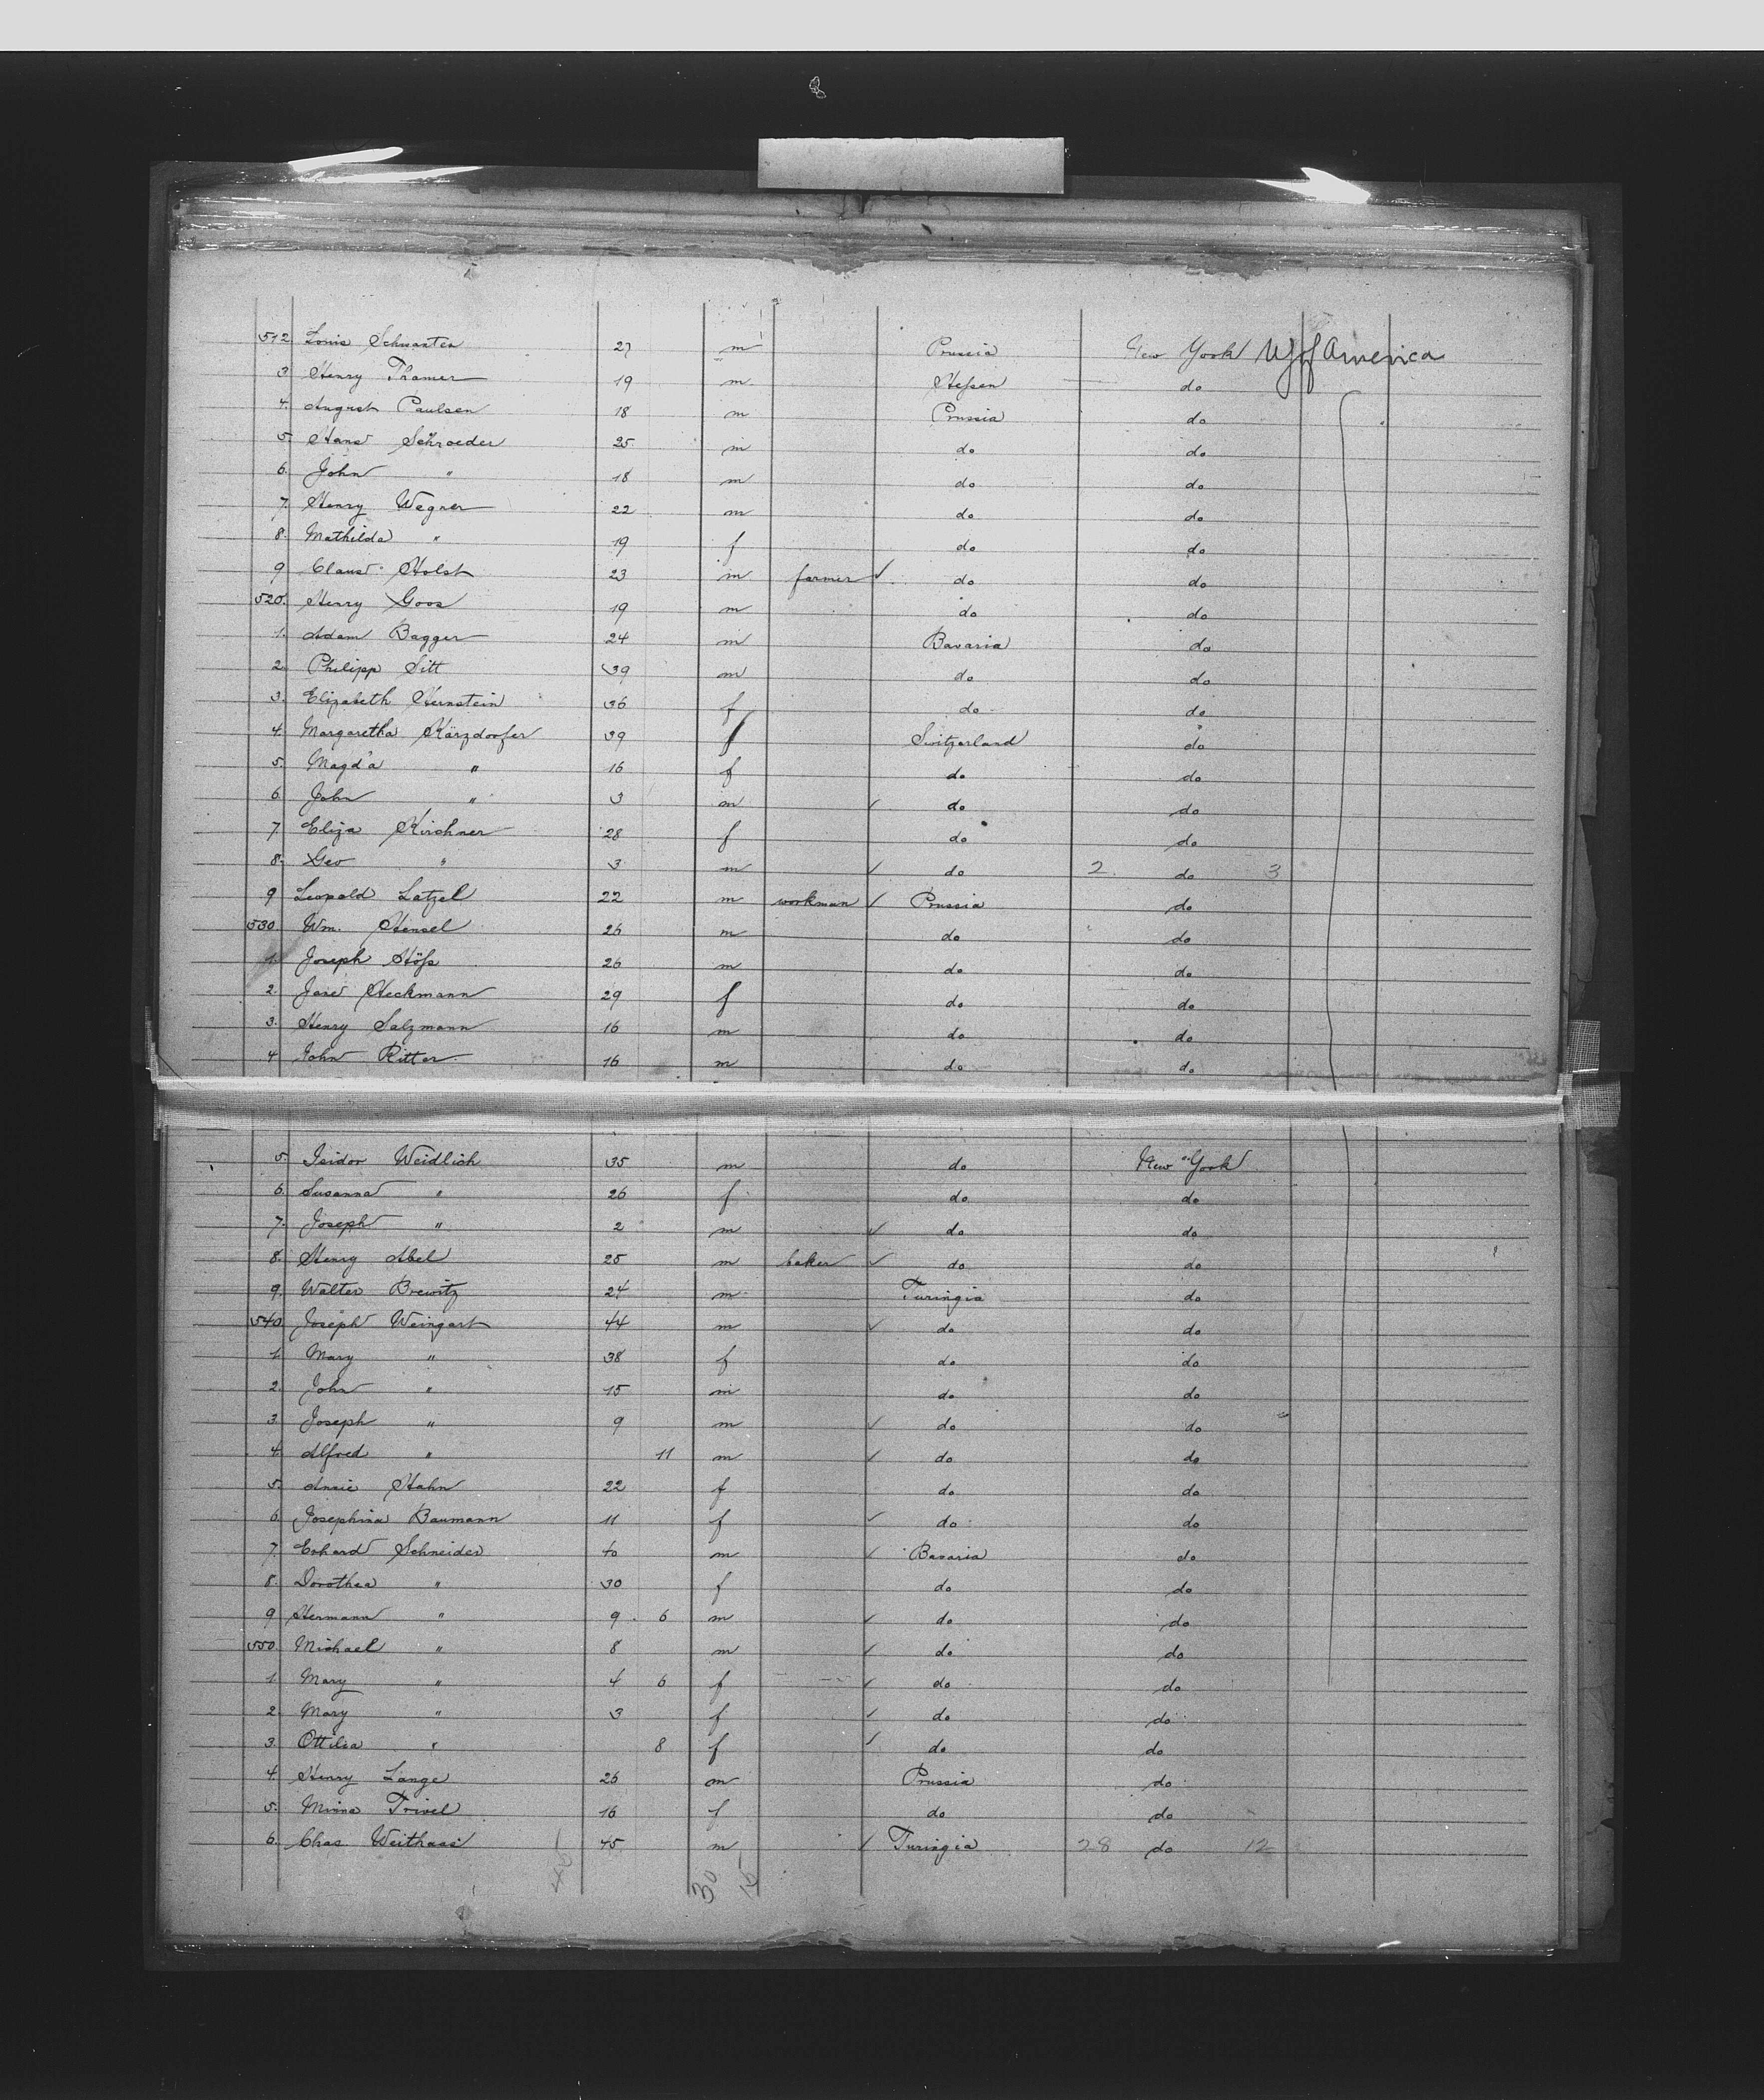 512 Louis Schwarten 27 m Prussia New York U of America
3 Henry Thamer 19 m Heſsen do
4. August Paulsen 18 m Prussia do
5. Hans Schroeder 25 m do do
6. John " 18 m do do
7. Henry Wegner 22 m do do
8. Mathilda " 19 f do do
9 Claus Holst 23 m farmer ✓ do do
520. Henry Goos 19 m do do
1. Adam Bagger 24 m Bavaria do
2. Philipp Sitt 39 m do do
3. Elizabeth Hernstein 36 f do do
4. Margaretha Kärzdorfer 39 f Switzerland do
5. Magda " 16 f do do
6. John " 3 m ✓ do do
7 Eliza Kirchner 28 f do do
8. Geo " 3 m ✓ do 2 do 3
9 Leopold Latzel 22 m workman ✓ Prussia do
530 Wm. Hensel 26 m do do
1. Joseph Höſs 26 m do do
2. Jane Heckmann 29 f do do
3. Henry Salzmann 16 m do do
4 John Ritter 16 m do do
5. Isidor Weidlich 35 m do New York
6. Susanna " 26 f do do
7. Joseph " 2 m ✓ do do
8. Henry Abel 25 m baker ✓ do do
9. Walter Brewitz 24 m Turingia do
540 Joseph Weingart 44 m ✓ do do
1. Mary " 38 f do do
2. John " 15 m do do
3. Joseph " 9 m ✓ do do
4. Alfred " 11 m ✓ do do
5. Annie Hahn 22 f do do
6. Josephina Baumann 11 f ✓ do do
7. Erhard Schneider 40 m ✓ Bavaria do
8. Dorothea " 30 f do do
9 Hermann " 9 6 m ✓ do do
550. Michael " 8 m ✓ do do
1. Mary " 4 6 f ✓ do do
2. Mary " 3 f ✓ do do
3. Ottilia " 8 f ✓ do do
4. Henry Lange 26 m Prussia do
5. Minna Trivel 16 f do do
6. Chas. Weithaas 45 m ✓ Turingia 28 do 12
46 30 16